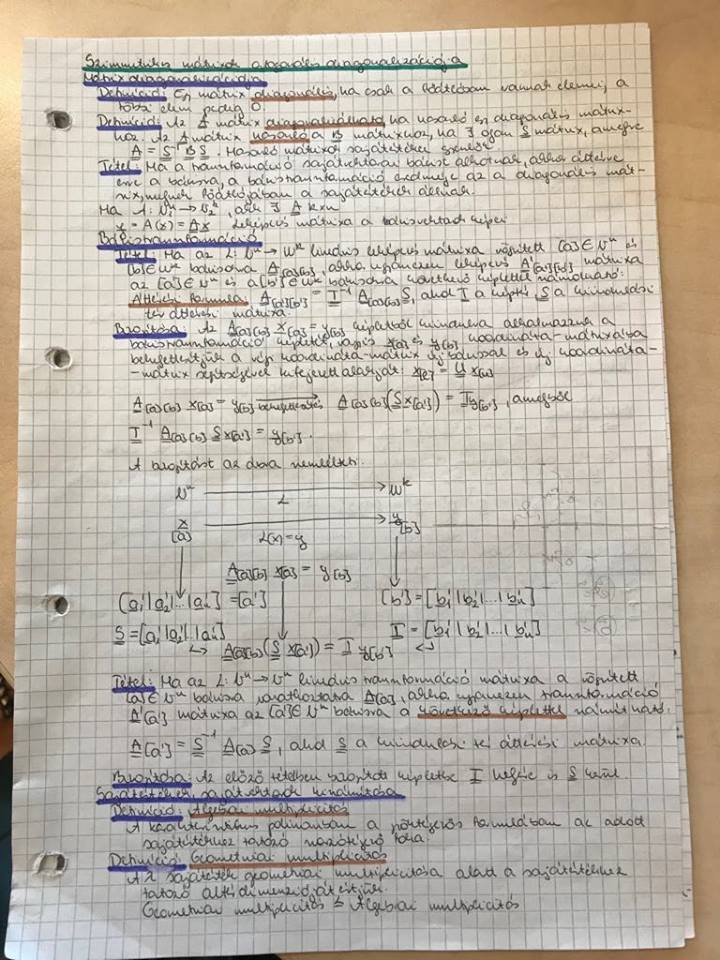 Szimmetrikus mátrixok ortogonális diagonalizációja
Mátrix diagonalizációja
Definíció: Egy mátrix diagonális, ha csak a főátlóban vannak elemei, a
többi elem pedig 0.
Definíció: Az A mátrix diagonalizálható, ha hasonló egy diagonális mátrix-
hoz. Az A mátrix hasonló a B mátrixhoz, ha ∃ olyan S mátrix, amelyre
A = S⁻¹ B S. Hasonló mátrixok sajátértékei
Tétel: Ha a transzformáció sajátvektorai bázist alkotnak, akkor áttérve
erre a bázisra, a bázistranszformáció eredménye az a diagonális mát-
rix, melynek főátlójában a sajátértékek állnak.
Ha
= A(x) = Ax leképezés mátrixa a bázisvektorok képei
Bázistranszformáció
Tétel: Ha az L: Vⁿ → Wᵏ lineáris leképezés mátrixa rögzített [a] ∈ Vⁿ és
[b] ∈ Wᵏ bázisokra A[a][b], akkor ugyanezen leképezés A'[a'][b'] mátrixa
az [a'] ∈ Vⁿ és a [b'] ∈ Wᵏ bázisokra a következő képlettel számolható:
Áttérési formula: A[a'][b'] = T⁻¹ A[a][b] S, ahol T a képtér, S a kiindulási
tér áttérési mátrixa.
Bizonyítás: Az A[a][b] x[a] = y[b] képletből kiindulva alkalmazzuk a
bázistranszformáció képletét, vagyis x[a] és y[b] koordináta-mátrixába
behelyettesítjük a régi koordináta-mátrix új bázissal és új koordináta-
-mátrix segítségével kifejezett alakját:
A[a][b] x[a] = y[b] behelyettesítés A[a][b] (S x[a']) = T y[b'], amelyből
T⁻¹ A[a][b] S x[a'] = y[b'].
A bizonyítást az ábra szemlélteti.
Vⁿ → Wᵏ
L
x → y
[a] L(x) = y [b]
A[a][b] x[a] = y[b]
[a₁'|a₂'|...|aₙ'] = [a'] [b'] = [b₁'|b₂'|...|bₙ']
S = [a₁'|a₂'|...|aₙ'] T = [b₁'|b₂'|...|bₙ']
A[a][b] (S x[a']) = T y[b']
Tétel: Ha az L: Vⁿ → Vⁿ lineáris transzformáció mátrixa a rögzített
[a] ∈ Vⁿ bázisra vonatkoztatva A[a], akkor ugyanezen transzformáció
A'[a'] mátrixa az [a'] ∈ Vⁿ bázisra a következő képlettel számítható:
A[a'] = S⁻¹ A[a] S, ahol S a kiindulási tér áttérési mátrixa.
Bizonyítás: Az előző tételben bizonyított képletbe T helyére is S kerül.
Sajátértékek, sajátvektorok kiszámítása
Definíció: Algebrai multiplicitás
A karakterisztikus polinomban a gyöktényezős formulában az adott
sajátértékhez tartozó hatványkitevő
Definíció: Geometriai multiplicitás
A λ sajátérték geometriai multiplicitása alatt a sajátértékhez
tartozó altér dimenzióját értjük.
Geometriai multiplicitás ≤ Algebrai multiplicitás